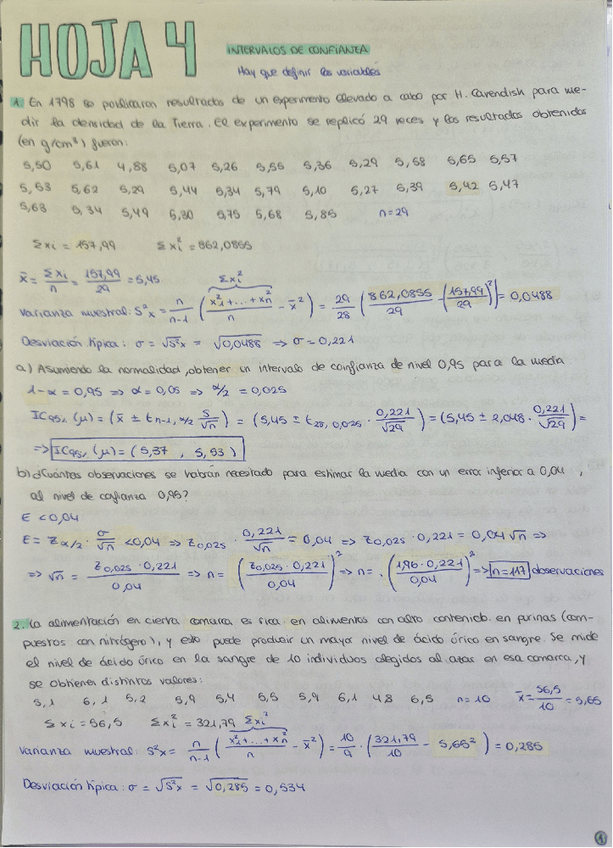 HOJA 4
INTERVALOS DE CONFIANZA
Hay que definir las variables
1. En 1798 se publicaron resultados de un experimento llevado a cabo por H. Cavendish para me-
dir la densidad de la Tierra. El experimento se replicó 29 veces y los resultados obtenidos
(en g/cm³) fueron:
5,50 5,61 4,88 5,07 5,26 5,55 5,36 5,29 5,58 5,65 5,57
5,53 5,62 5,29 5,44 5,34 5,79 5,10 5,27 5,39 5,42 5,47
5,63 5,34 5,49 5,30 5,75 5,68 5,85 n=29
Σxi = 157,99 Σxi² = 862,0855
x̄ = Σxi/n = 157,99/29 = 5,45
Varianza muestral: S²x = n/n-1 ( x₁²+...+xn²/n - x̄² ) = 29/28 ( 862,0855/29 - (157,99/29)² ) = 0,0488
Σxi²
Desviación típica: σ = √S²x = √0,0488 ⇒ σ = 0,221
a) Asumiendo la normalidad, obtener un intervalo de confianza de nivel 0,95 para la media
1-α = 0,95 ⇒ α = 0,05 ⇒ α/2 = 0,025
IC95% (μ) = (x̄ ± tn-1, α/2 S/√n) = (5,45 ± t28, 0,025 · 0,221/√29) = (5,45 ± 2,048 · 0,221/√29) =
⇒ IC95% (μ) = (5,37 , 5,53)
b) ¿Cuántas observaciones se habrán necesitado para estimar la media con un error inferior a 0,04,
al nivel de confianza 0,95?
E < 0,04
E = Zα/2 · σ/√n < 0,04 ⇒ Z0,025 · 0,221/√n = 0,04 ⇒ Z0,025 · 0,221 = 0,04 √n ⇒
⇒ √n = Z0,025 · 0,221/0,04 ⇒ n = (Z0,025 · 0,221/0,04)² ⇒ n = · (1,96 · 0,221/0,04)² ⇒ n = 117 observaciones
2. La alimentación en cierta comarca es rica en alimentos con alto contenido en purinas (com-
puestos con nitrógeno), y esto puede producir un mayor nivel de ácido úrico en sangre. Se mide
el nivel de ácido úrico en la sangre de 10 individuos elegidos al azar en esa comarca, y
se obtienen distintos valores:
5,1 6,1 5,2 5,9 5,4 5,5 5,9 6,1 4,8 6,5 n=10 x̄ = 56,5/10 = 5,65
Σxi = 56,5 Σxi² = 321,79 Σxi²
Varianza muestral: S²x = n/n-1 ( x₁²+...+xn²/n - x̄² ) = 10/9 · ( 321,79/10 - 5,65² ) = 0,285
Desviación típica: σ = √S²x = √0,285 = 0,534
1